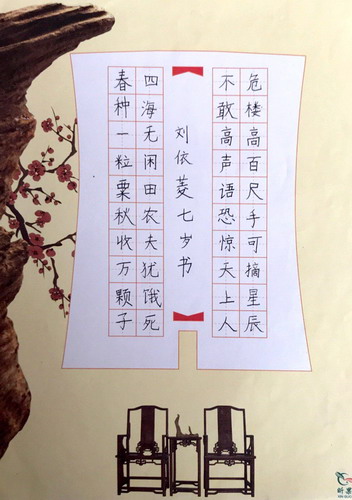 危楼高百尺手可摘星辰
不敢高声语恐惊天上人
刘依菱七岁书
四海无闲田农夫犹饿死
春种一粒粟秋收万颗子